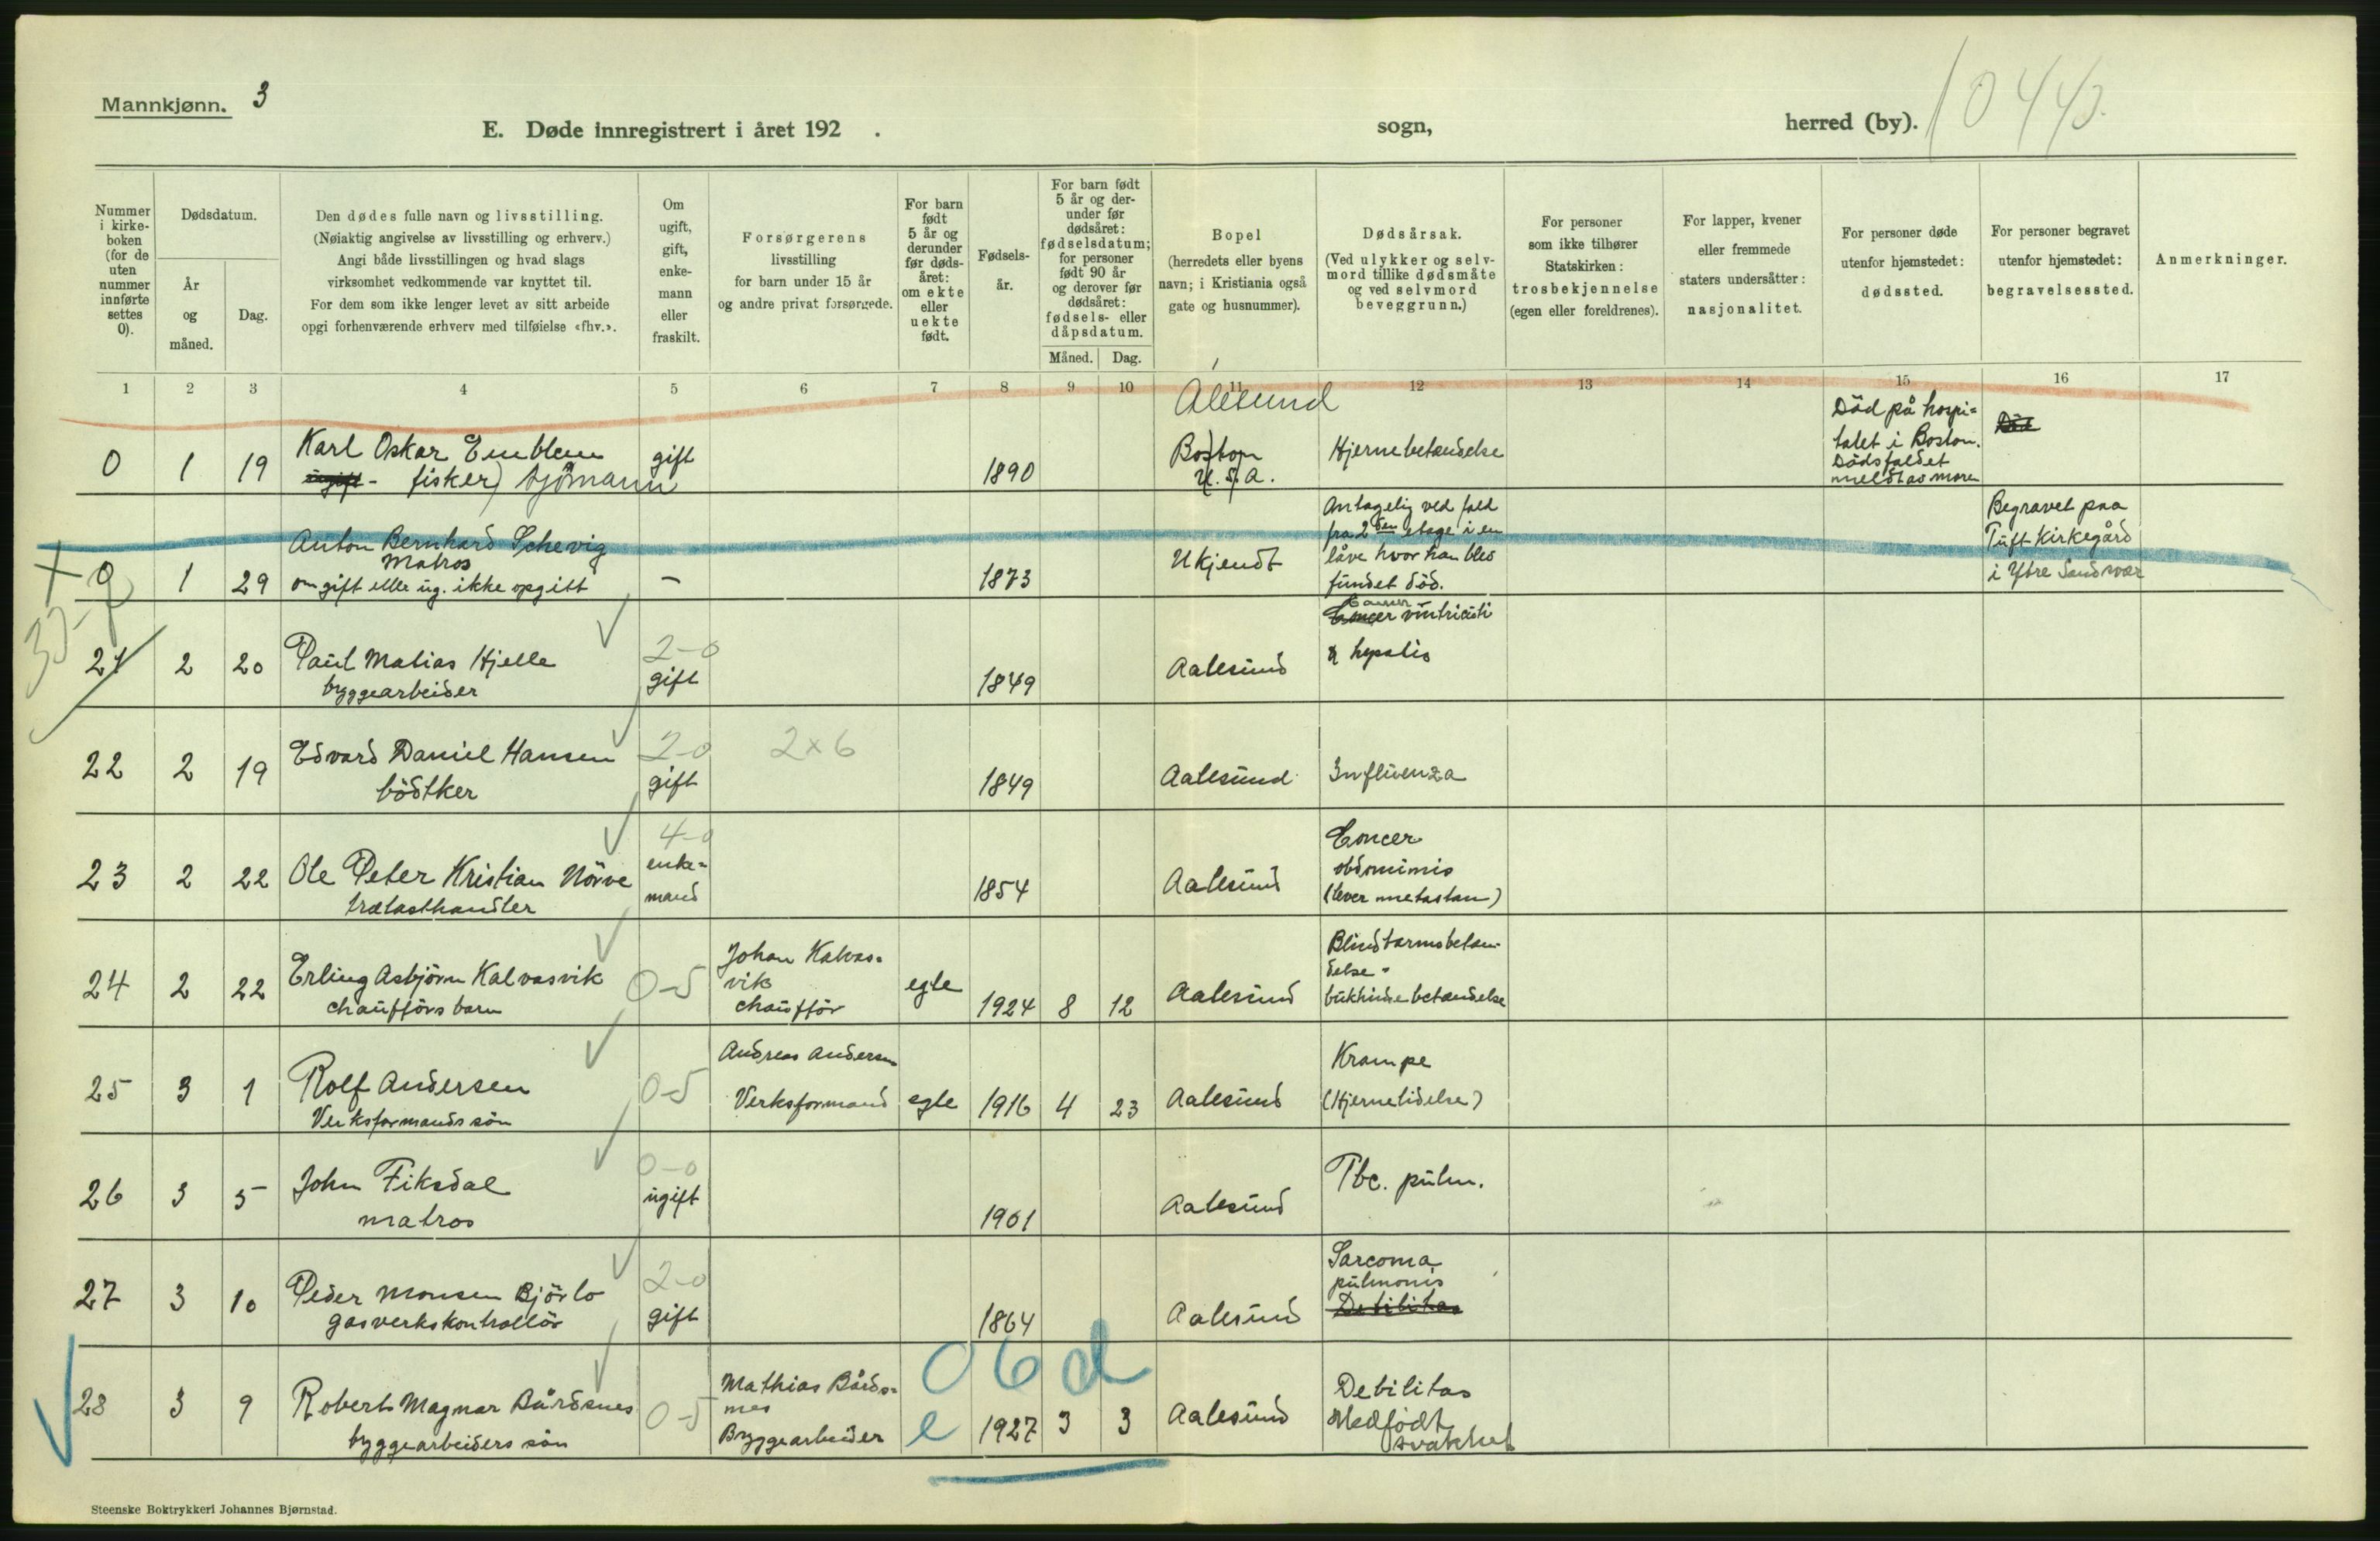 Mannkjønn. 3
E. Døde innregistrert i året 192 .
sogn,
herred (by).
Nummer i kirke-boken (for de uten nummer innførte settes 0).
Dødsdatum.
År og måned.
Dag.
Den dødes fulle navn og livsstilling.
(Nøiaktig angivelse av livsstilling og erhverv.)
Angi både livsstillingen og hvad slags
virksomhet vedkommende var knyttet til.
For dem som ikke lenger levet av sitt arbeide
opgi forhenværende erhverv med tilføielse «fhv.».
Om ugift, gift, enke-mann eller fraskilt.
Forsørgerens
livsstilling
for barn under 15 år
og andre privat forsørgede.
For barn født 5 år og derunder før døds-året: om ekte eller uekte født.
Fødsels-år.
For barn født 5 år og der-under før dødsåret: fødselsdatum; for personer født 90 år og derover før dødsåret: fødsels- eller dåpsdatum.
Måned. Dag.
Bopel
(herredets eller byens
navn; i Kristiania også
gate og husnummer).
Dødsårsak.
(Ved ulykker og selv-
mord tillike dødsmåte
og ved selvmord
beveggrunn.)
For personer
som ikke tilhører
Statskirken:
trosbekjennelse
(egen eller foreldrenes).
For lapper, kvener
eller fremmede
staters undersåtter:
nasjonalitet.
For personer døde
utenfor hjemstedet:
dødssted.
For personer begravet
utenfor hjemstedet:
begravelsessted.
Anmerkninger.
1 2 3 4 5 6 7 8 9 10 11 12 13 14 15 16 17
Alesund
0 1 19 Karl Oskar Emblem
fisker) sjömann
gift 1890
Boston
U.S.A.
Hjernebetændelse
Död på hospi=
talet i Boston.
Dödsfaldet
meldt av moren
0 1 29 Anton Bernhard Schevig
Matros
om gift eller ug. ikke opgitt
- 1873 Ukjendt
Antagelig ved fald
fra 2den etage i en
låve hvor han blev
fundet död.
Begravet paa
Tuft Kirkegård
i Ytre Sandsvær
21 2 20 Paul Matias Hjelle
byggearbeider
2-0
gift 1849 Aalesund
Cancer ventriculi
& hepatis
22 2 19 Edvard Daniel Hansen
bödtker
2-0
gift
2x6
1849 Aalesund Influenza
23 2 22 Ole Peter Kristian Nörve
trælasthandler
4-0
enke=
mand
1854 Aalesund
Cancer
abdominis
(lever metastan)
24 2 22 Erling Asbjörn Kalvasvik
chaufförs barn
0-5
Johan Kalvas=
vik
chaufför
egte 1924 8 12 Aalesund
Blindtarmsbetæn=
delse =
bukhindebetændelse
25 3 1 Rolf Andersen
Verksformands sön
0-5
Andreas Andersen
Verksformand
egte 1916 4 23 Aalesund
Krampe
(Hjernelidelse)
26 3 5 John Fiksdal
matros
0-0
ugift 1901 Aalesund
Tbc. pulm.
27 3 10 Peder Monsen Björlo
gasverkskontrollör
2-0
gift 1864 Aalesund
Sarcoma
pulmonis
Debilitas
28 3 9 Robert Magnar Bårdsnes
byggearbeiders sön
0-5
Mathias Bårds=
nes
Byggearbeider
06d
e 1927 3 3 Aalesund
Debilitas
Medfödt
svakhet
Steenske Boktrykkeri Johannes Bjørnstad.